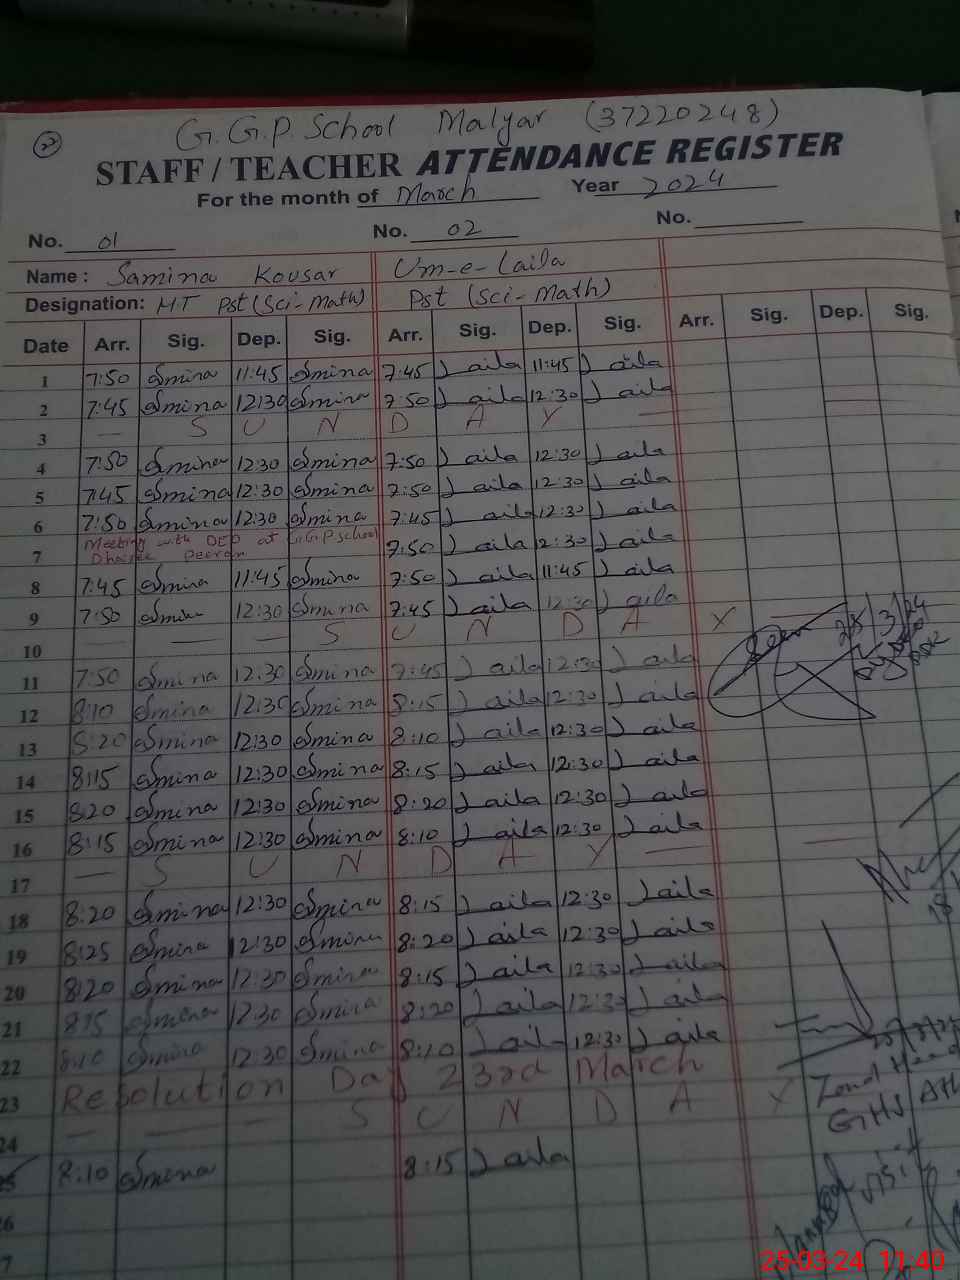 22
G.G.P. School Malyar (37220248)
STAFF / TEACHER ATTENDANCE REGISTER
For the month of March Year 2024
No. 01 No. 02 No.
Name : Samina Kousar Um-e-Laila
Designation: HT Pst (Sci-Math) Pst (Sci-Math)
Date Arr. Sig. Dep. Sig. Arr. Sig. Dep. Sig. Arr. Sig. Dep. Sig.
1 7:50 Smina 11:45 Smina 7:45 Laila 11:45 Laila
2 7:45 Smina 12:30 Smina 7:50 Laila 12:30 Laila
3 — S U N D A Y —
4 7:50 Smina 12:30 Smina 7:50 Laila 12:30 Laila
5 7:45 Smina 12:30 Smina 7:50 Laila 12:30 Laila
6 7:50 Smina 12:30 Smina 7:45 Laila 12:30 Laila
7 Meeting with DEO at G.G.P School 7:50 Laila 12:30 Laila
8 7:45 Smina 11:45 Smina 7:50 Laila 11:45 Laila
9 7:50 Smina 12:30 Smina 7:45 Laila 12:30 Laila
10 — — — S U N D A Y —
11 7:50 Smina 12:30 Smina 7:45 Laila 12:30 Laila
12 8:10 Smina 12:30 Smina 8:15 Laila 12:30 Laila
13 8:20 Smina 12:30 Smina 8:10 Laila 12:30 Laila
14 8:15 Smina 12:30 Smina 8:15 Laila 12:30 Laila
15 8:20 Smina 12:30 Smina 8:20 Laila 12:30 Laila
16 8:15 Smina 12:30 Smina 8:10 Laila 12:30 Laila
17 — S U N D A Y —
18 8:20 Smina 12:30 Smina 8:15 Laila 12:30 Laila
19 8:25 Smina 12:30 Smina 8:20 Laila 12:30 Laila
20 8:20 Smina 12:30 Smina 8:15 Laila 12:30 Laila
21 8:15 Smina 12:30 Smina 8:20 Laila 12:30 Laila
22 8:10 Smina 12:30 Smina 8:20 Laila 12:30 Laila
23 Resolution Day 23rd March
24 — — — S U N D A Y
25 8:10 Smina 8:15 Laila
26
GHS
25-03-24 11:40